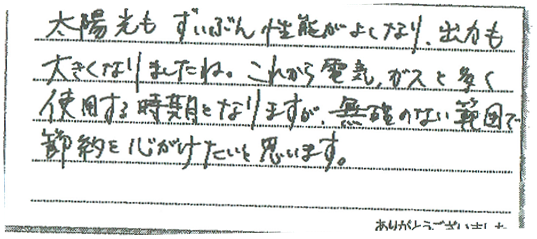 太陽光も ずいぶん性能がよくなり、出力も
大きくなりましたね。これから電気、ガスと多く
使用する時期となりますが、無理のない範囲で
節約を心がけたいと思います。
ありがとうございました